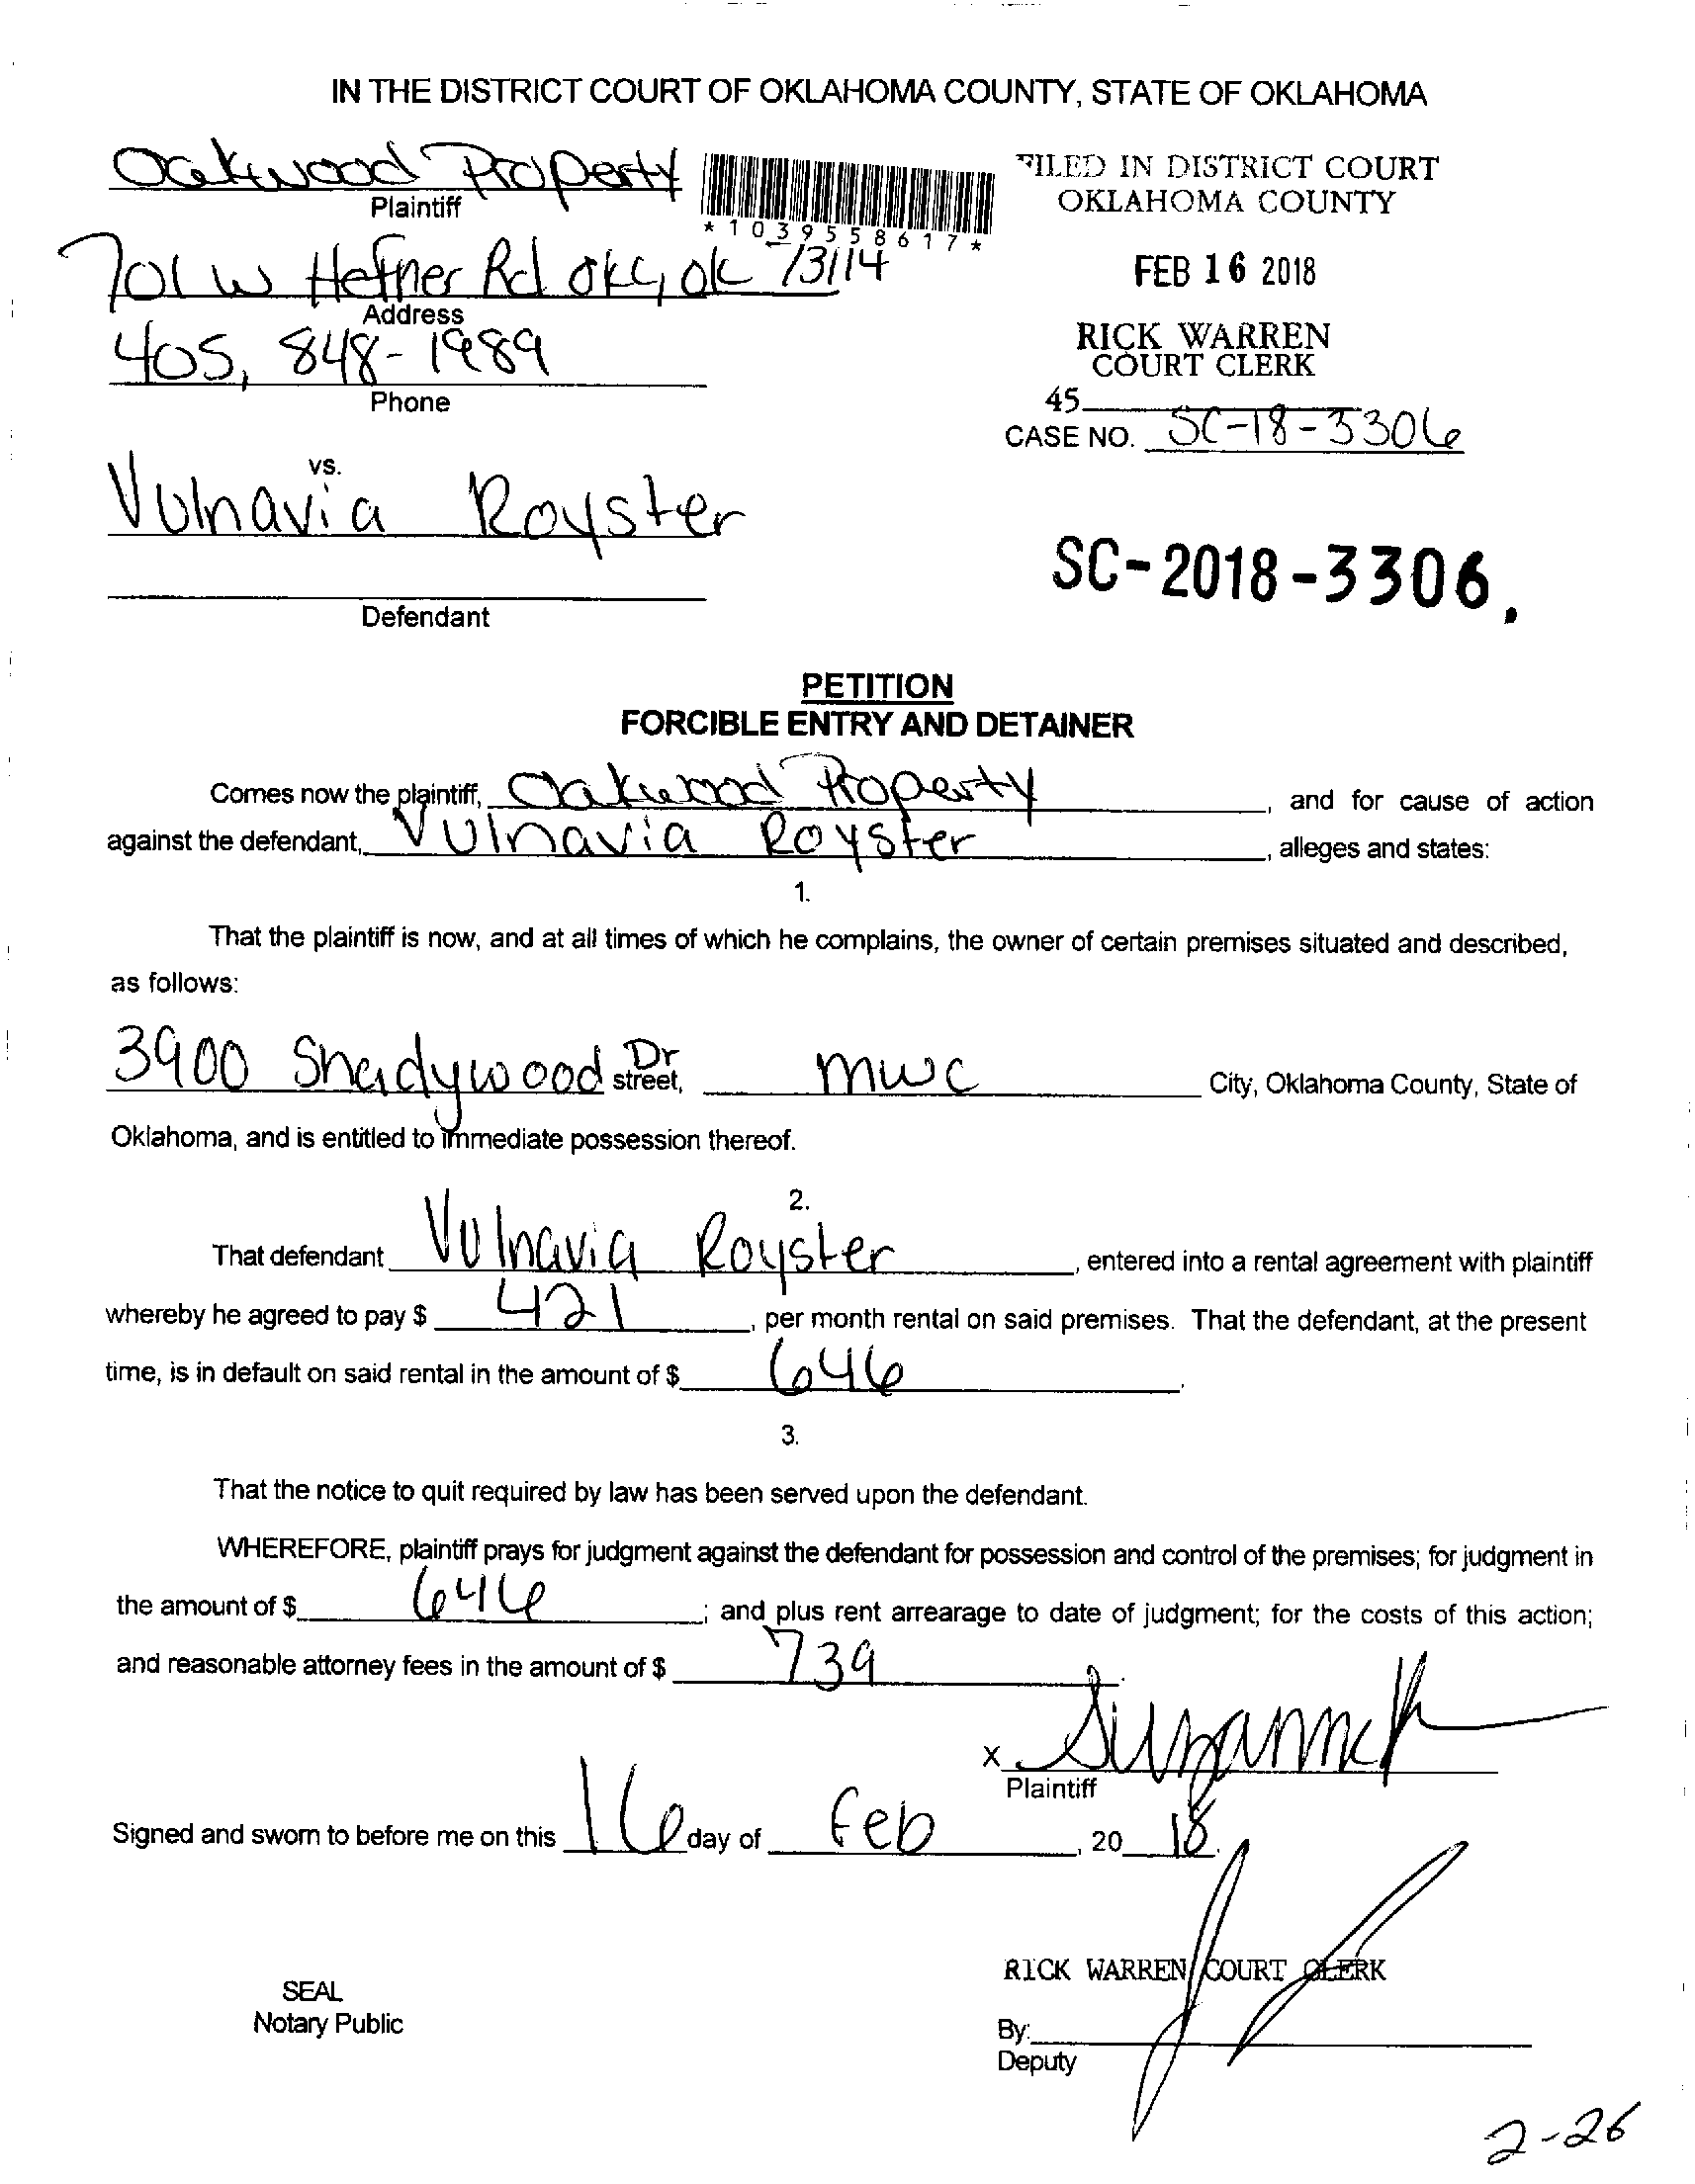 IN THE DISTRICT COURT OF OKLAHOMA COUNTY, STATE OF OKLAHOMA
Oakwood Property
Plaintiff
*1039558617*
701 W Hefner Rd OKC, OK 73114
Address
405, 848-1989
Phone
FILED IN DISTRICT COURT
OKLAHOMA COUNTY
FEB 16 2018
RICK WARREN
COURT CLERK
45
CASE NO. SC-18-3306
vs.
Vulnavia Royster
Defendant
SC-2018-3306.
PETITION
FORCIBLE ENTRY AND DETAINER
Comes now the plaintiff, Oakwood Property, and for cause of action
against the defendant, Vulnavia Royster, alleges and states:
1.
That the plaintiff is now, and at all times of which he complains, the owner of certain premises situated and described,
as follows:
3900 Shadywood Dr street, MWC City, Oklahoma County, State of
Oklahoma, and is entitled to immediate possession thereof.
2.
That defendant Vulnavia Royster, entered into a rental agreement with plaintiff
whereby he agreed to pay $ 421, per month rental on said premises. That the defendant, at the present
time, is in default on said rental in the amount of $ 646.
3.
That the notice to quit required by law has been served upon the defendant.
WHEREFORE, plaintiff prays for judgment against the defendant for possession and control of the premises; for judgment in
the amount of $ 646; and plus rent arrearage to date of judgment; for the costs of this action;
and reasonable attorney fees in the amount of $ 739.
X
Plaintiff
Signed and sworn to before me on this 16 day of Feb, 20 18.
RICK WARREN COURT CLERK
SEAL
Notary Public
By:
Deputy
2-26